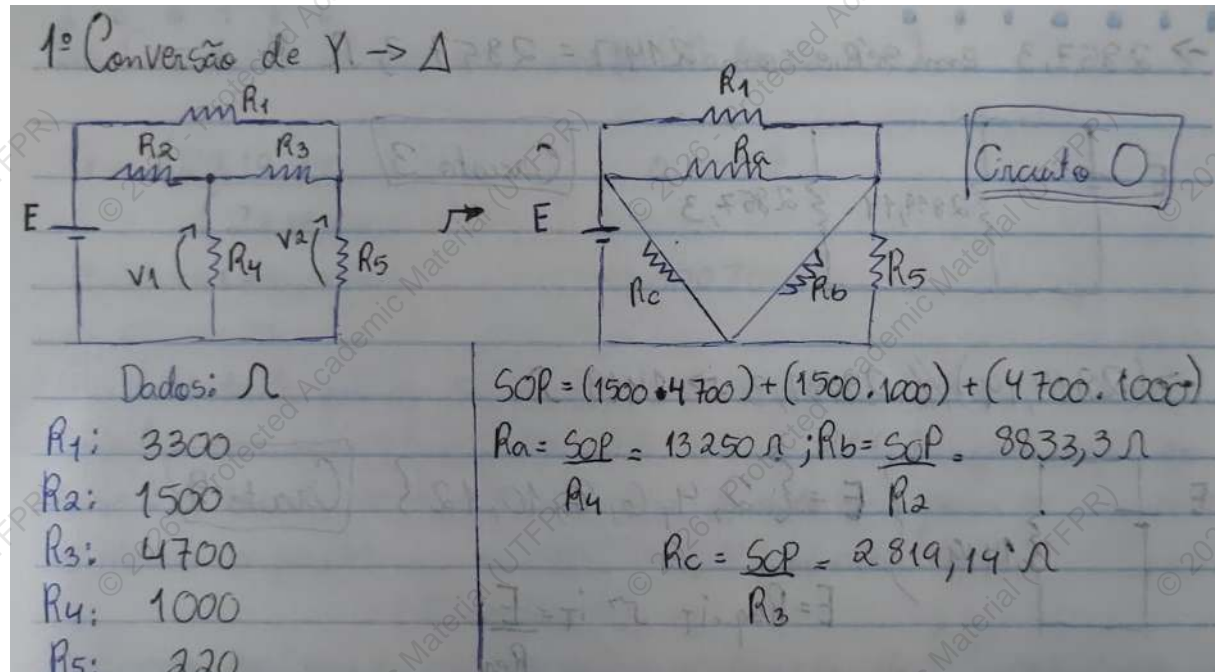 1º Conversão de Y → Δ
R1
R2 R3
E
V1 R4 V2 R5
R1
Ra
E
Rc Rb R5
Circuito 0
Dados: Ω
R1: 3300
R2: 1500
R3: 4700
R4: 1000
R5: 220
SOP = (1500 • 4700) + (1500 . 1000) + (4700 . 1000)
Ra = SOP = 13250 Ω ; Rb = SOP = 8833,3 Ω
R4 R2
Rc = SOP = 2819,14 Ω
R3
© 2026 - Protected Academic Material (UTFPR)